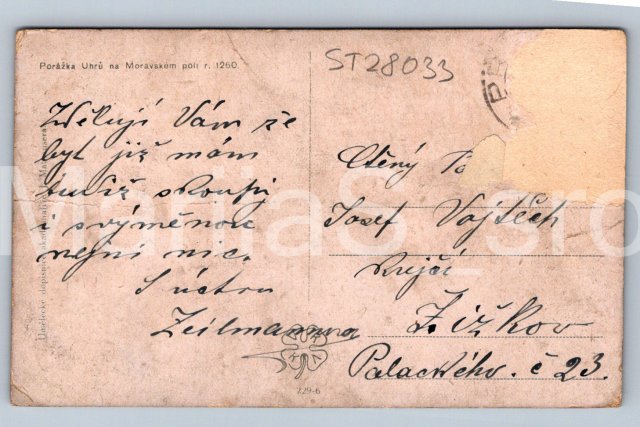 Porážka Uhrů na Moravském poli r. 1260
ST28033
Zvěstuji Vám že
byt již mám
tudíž
i s výměnou
není nic.
S úctou
Zeilmannova
Ctěný P
Josef Vojtěch
Krejčí
Žižkov
Palackého č 23.
229-6
ManiaS_sro